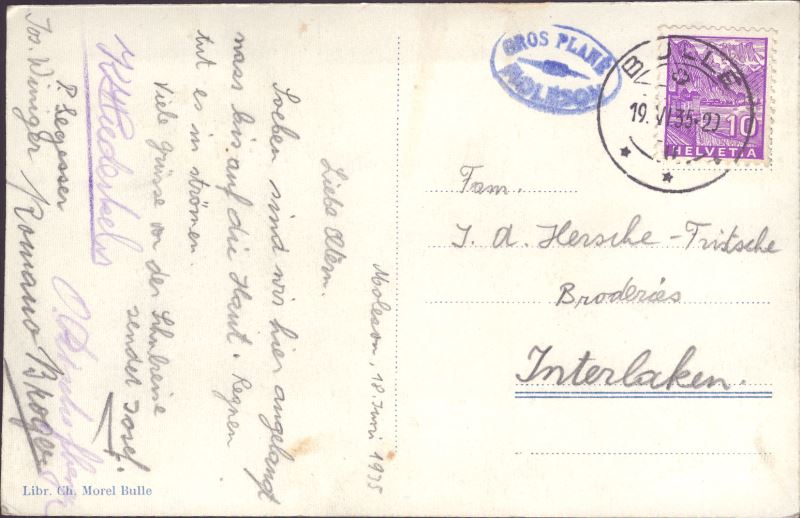 GROS PLANÉ
MOLESON
BULLE
19. VI. 35-20
10
HELVETIA
Fam.
J. A. Hersche-Fritsche
Broderies
Interlaken.
Moleson, 18. Juni 1935
Liebe Eltern.
Soeben sind wir hier angelangt
nass bis auf die Haut. Regnen
tut es in strömen.
Viele Grüsse von der Schulreise
sendet Josef.
P. Segesser
Jos. Winiger Romano Broger
Libr. Ch. Morel Bulle